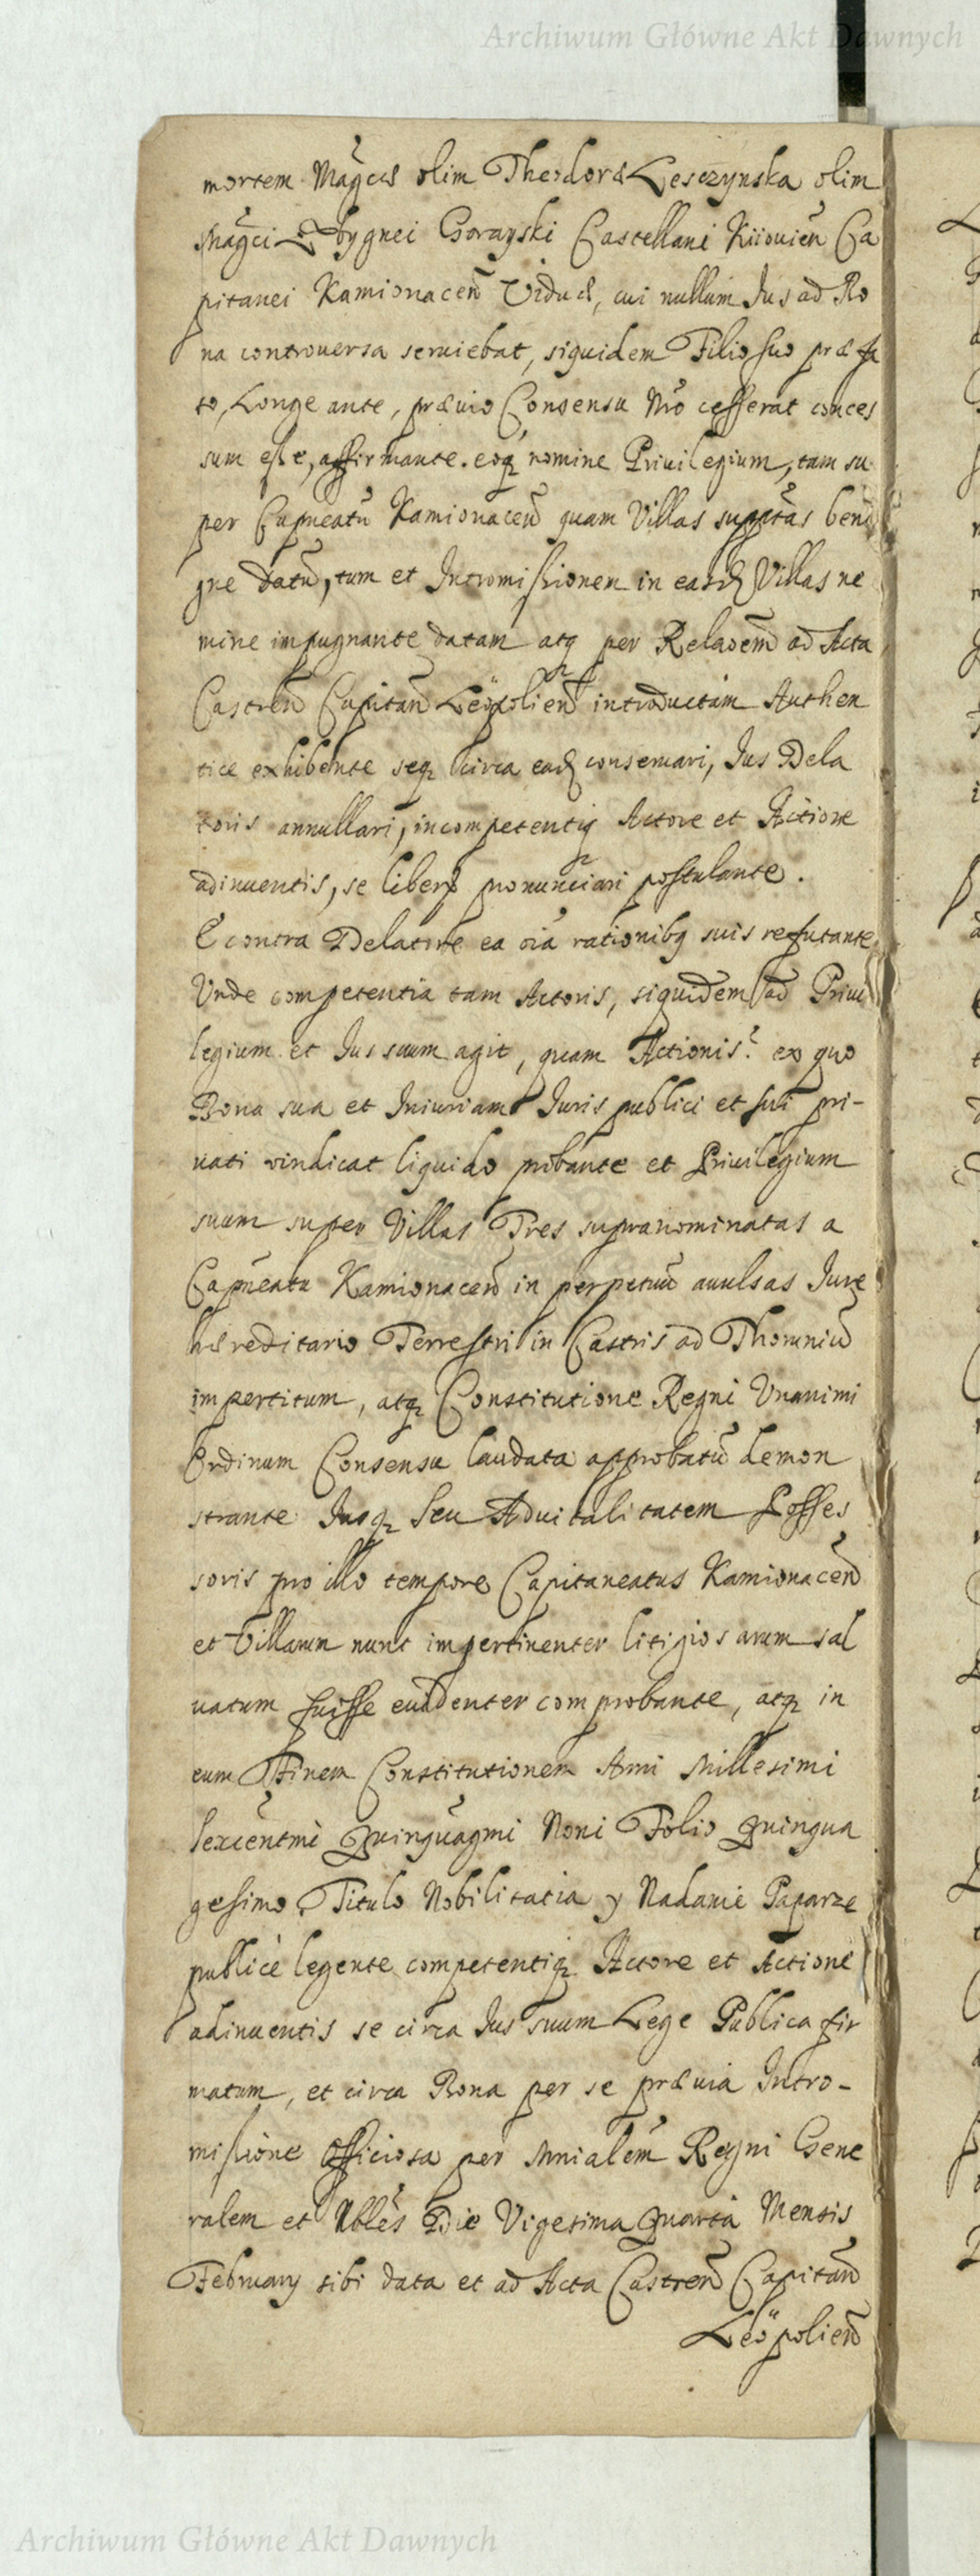 Archiwum Główne Akt Dawnych
mortem Magcæ olim Theodoræ Lesczynska olim
Magci Zbygnei Gorayski Castellani Kiiouień Ca
pitanei Kamionaceń Viduæ, cui nullum Jus ad Bo
na controuersa seruiebat, siquidem Filio suo præfa
to, Longe ante, præuio Consensu Nro cesserat conces
sum esse, affirmante. eoq nomine Priuilegium, tam su
per Capneatū Kamionaceń quam Villas suppttas beni
gne datū, tum et Intromissionem in easd Villas ne
mine impugnante datam atq per Relaōem ad Acta
Castreń Capitań Leöpolień introductam Authen
tice exhibente seq circa ead conseruari, Jus Dela
toris annullari, incompetentiq Actore et Actione
adinuentis, se liberū pronunciari postulante.
E contra Delatore ea oīa rationibq suis refutante
Unde competentia tam Actoris, siquidem ad Priui
legium et Jus suum agit, quam Actionis? ex quo
Bona sua et Iniuriam Juris publici et sui pri-
uati vindicat liquido probante et Priuilegium
suum super Villas Tres supranominatas a
Capneatu Kamionaceń in perpetuū auulsas Jure
hæreditario Terrestri in Castris ad Thoruniū
impertitum, atq Constitutione Regni Unanimi
Ordinum Consensu laudata approbatū demon
strante Jusq seu Aduitalitatem Posses
soris pro illo tempore Capitaneatus Kamionaceń
et Villarum nunc impertinenter litigiosarum sal
uatum fuisse euidenter comprobante, atq in
eum Finem Constitutionem Anni Millesimi
sexcentmi Quinquagmi Noni Folio Quinqua
gesimo Titulo Nobilitatia y Nadanie Paparze
publicè legente competentiq Actore et Actione
adinuentis se circa Jus suum Lege Publica fir
matum, et circa Bona per se præuia Intro-
missione Officiosa per Mnialem Regni Gene
ralem et Nbles Die Vigesima Quarta Mensis
February sibi data et ad Acta Castreń Capitań
Leöpolień
Archiwum Główne Akt Dawnych